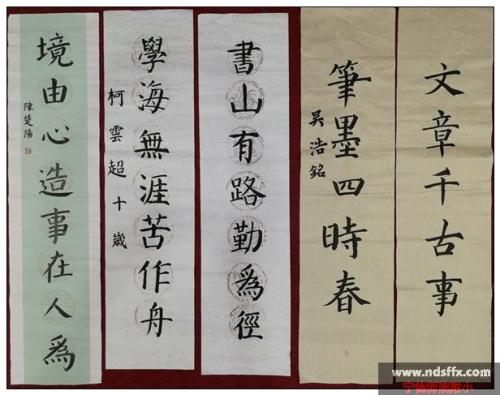 文章千古事
筆墨四時春
吴浩銘
書山有路勤爲徑
學海無涯苦作舟
柯雲超十歲
境由心造事在人爲
陳楚陽
www.ndsffx.com